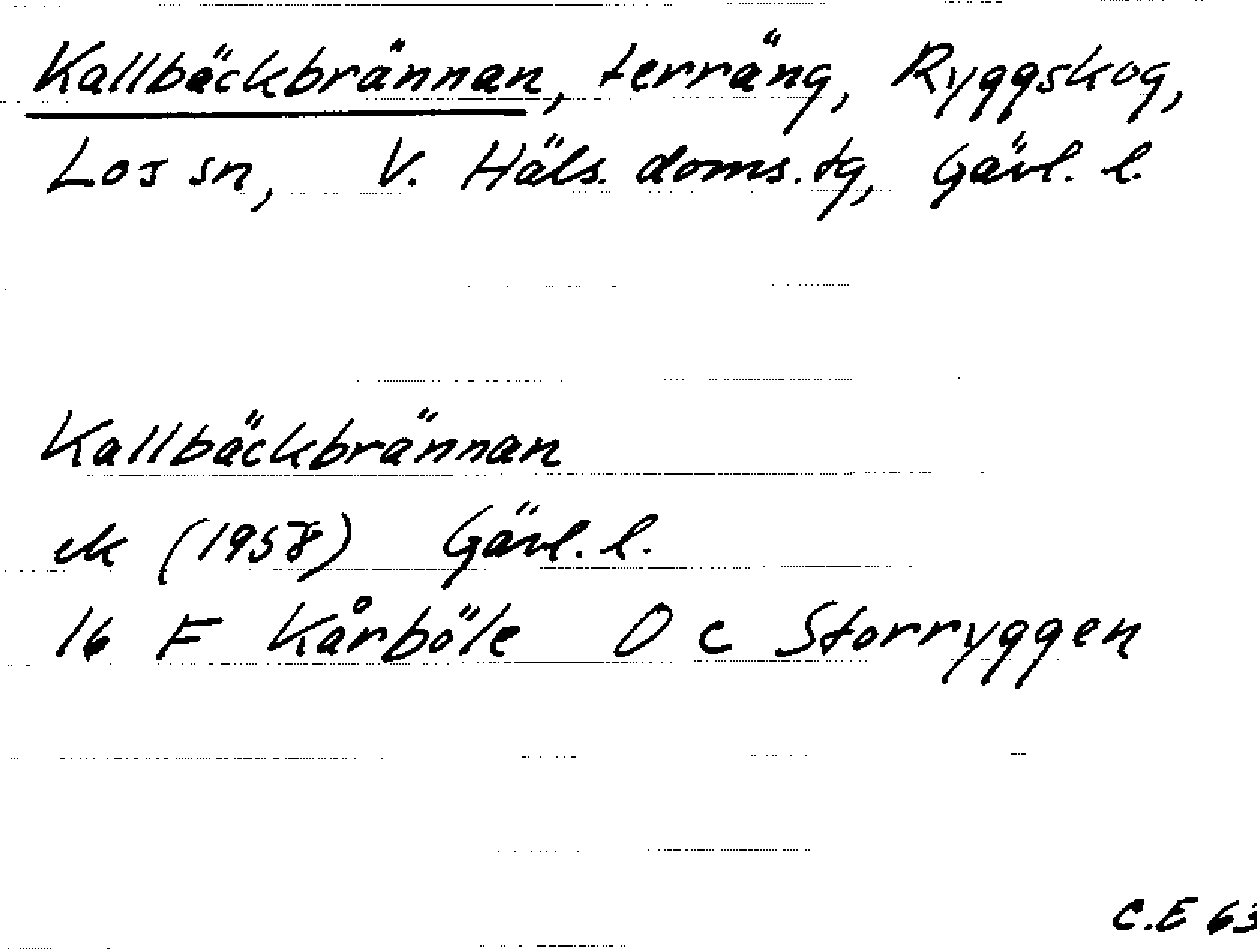 Kallbäckbrännan, terräng, Ryggskog,
Los sn, V. Häls. doms. tg, Gävl. l.
Kallbäckbrännan
ek (1958) Gävl. l.
16 F Kårböle 0 c Storryggen
C.E 63